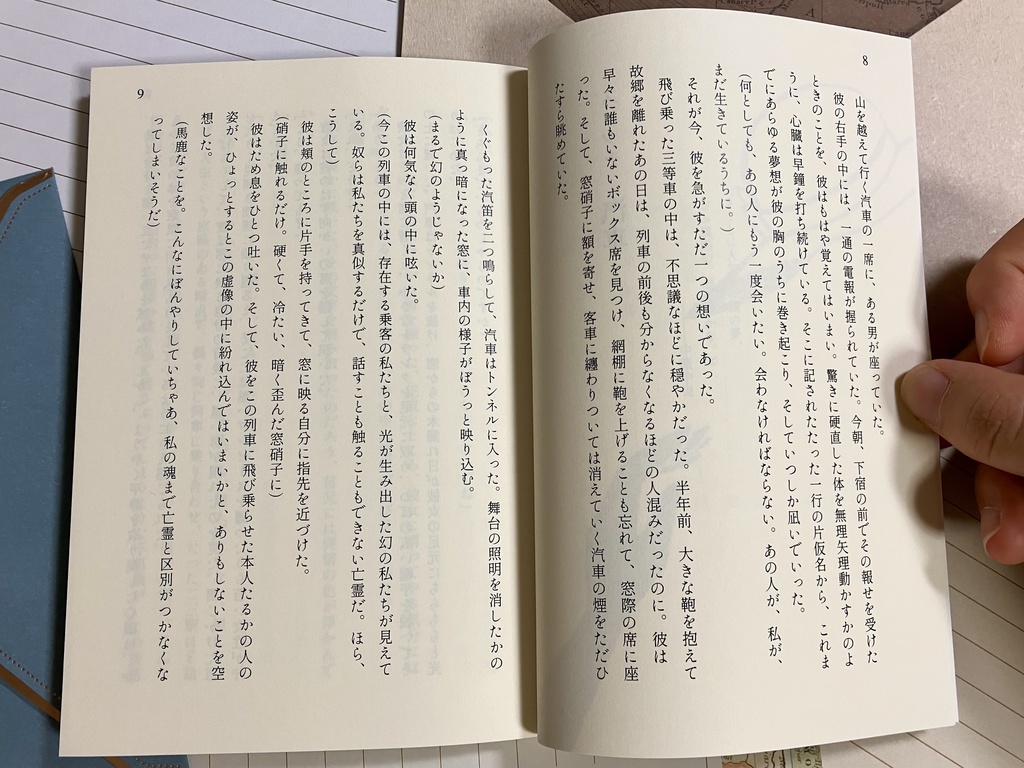 8
山を越えて行く汽車の一席に、ある男が座っていた。
彼の右手の中には、一通の電報が握られていた。今朝、下宿の前でその報せを受けた
ときのことを、彼はもはや覚えてはいまい。驚きに硬直した体を無理矢理動かすかのよ
うに、心臓は早鐘を打ち続けている。そこに記されたたった一行の片仮名から、これま
でにあらゆる夢想が彼の胸のうちに巻き起こり、そしていつしか凪いでいった。
(何としても、あの人にもう一度会いたい。会わなければならない。あの人が、私が、
まだ生きているうちに。)
それが今、彼を急がすただ一つの想いであった。
飛び乗った三等車の中は、不思議なほどに穏やかだった。半年前、大きな鞄を抱えて
故郷を離れたあの日は、列車の前後も分からなくなるほどの人混みだったのに。彼は
早々に誰もいないボックス席を見つけ、網棚に鞄を上げることも忘れて、窓際の席に座
った。そして、窓硝子に額を寄せ、客車に纏わりついては消えていく汽車の煙をただひ
たすら眺めていた。
9
くぐもった汽笛を二つ鳴らして、汽車はトンネルに入った。舞台の照明を消したかの
ように真っ暗になった窓に、車内の様子がぼうっと映り込む。
(まるで幻のようじゃないか)
彼は何気なく頭の中に呟いた。
(今この列車の中には、存在する乗客の私たちと、光が生み出した幻の私たちが見えて
いる。奴らは私たちを真似するだけで、話すことも触ることもできない亡霊だ。ほら、
こうして)
彼は頬のところに片手を持ってきて、窓に映る自分に指先を近づけた。
(硝子に触れるだけ。硬くて、冷たい、暗く歪んだ窓硝子に)
彼はため息をひとつ吐いた。そして、彼をこの列車に飛び乗らせた本人たるかの人の
姿が、ひょっとするとこの虚像の中に紛れ込んではいまいかと、ありもしないことを空
想した。
(馬鹿なことを。こんなにぼんやりしていちゃあ、私の魂まで亡霊と区別がつかなくな
ってしまいそうだ)